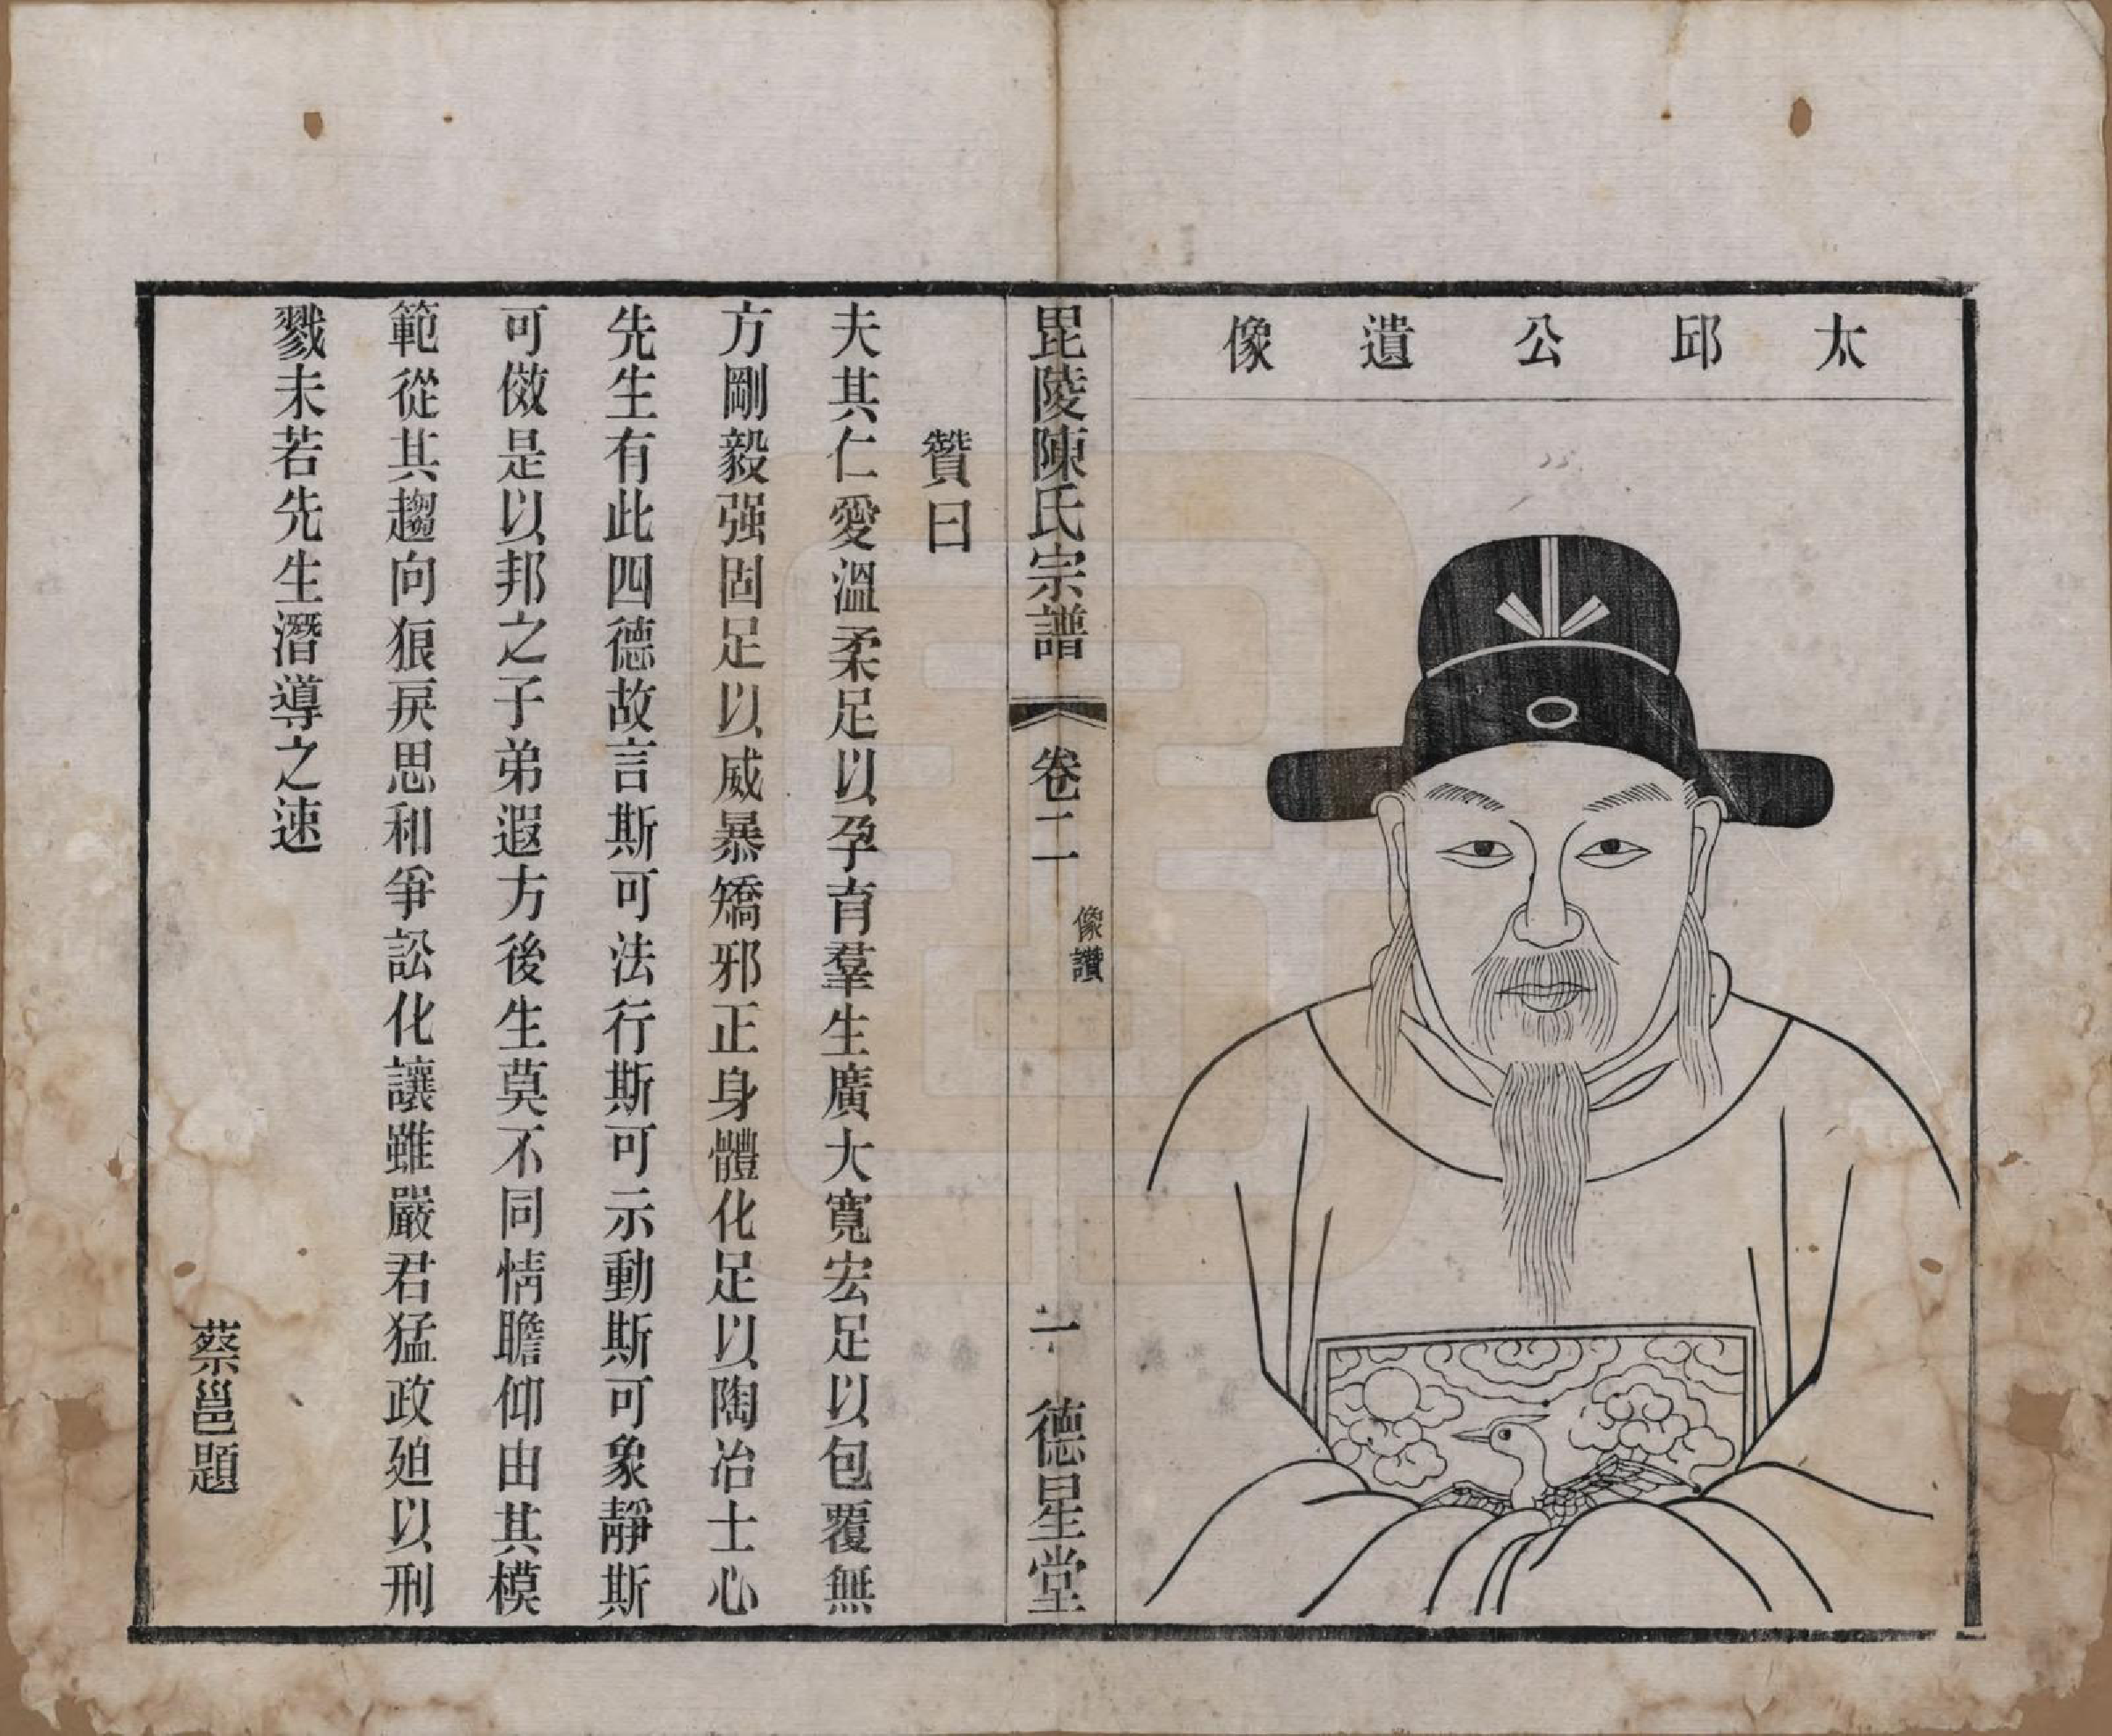 太邱公遺像
毘陵陳氏宗譜 卷二 像讚 一 德星堂
贊曰
夫其仁愛溫柔足以孕育羣生廣大寬宏足以包覆無
方剛毅强固足以威暴矯邪正身體化足以陶冶士心
先生有此四德故言斯可法行斯可示動斯可象靜斯
可傚是以邦之子弟遐方後生莫不同情瞻仰由其模
範從其趨向狠戾思和爭訟化讓雖嚴君猛政廹以刑
戮未若先生潛導之速
蔡邕題